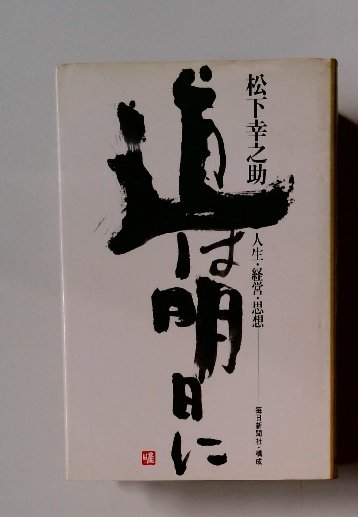 松下幸之助
人生・経営・思想
毎日新聞社・構成
道は明日に